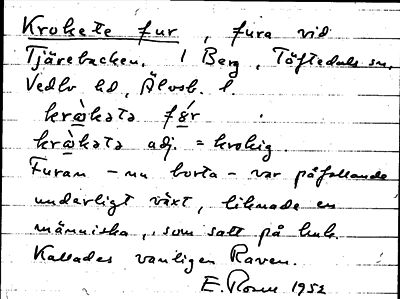 Krokete fur, fura vid
Tjärebacken. 1 Berg, Töftedals sn,
Vedbo hd, Älvsb. l.
krɷ̀kətə fǿr
krɷ̀kətə adj. = krokig.
Furan – nu borta – var påfallande
underligt växt, liknade en
människa, som satt på huk.
Kallades vanligen Raven.
E. 1952